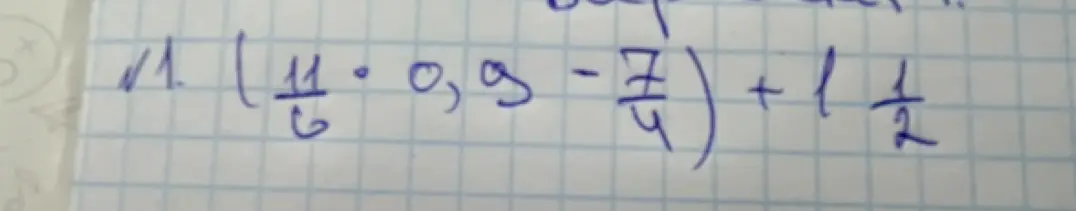 √1. (11/6 · 0,9 - 7/4) + 1 1/2